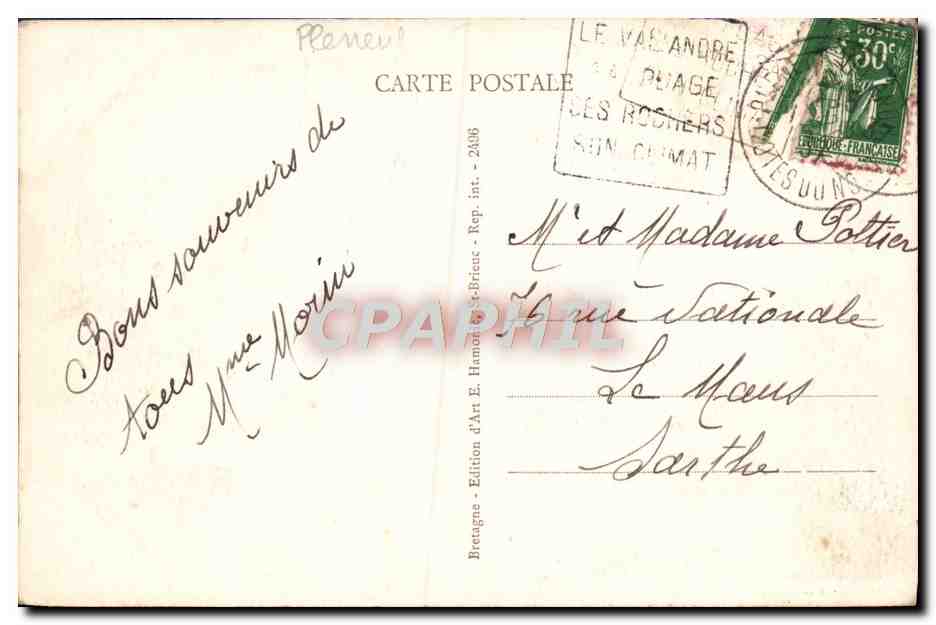 Pleneuf
CARTE POSTALE
LE VAL ANDRE
SA PLAGE
SES ROCHERS
SON CLIMAT
POSTES
30c
FRANÇAISE
CÔTES DU N.
Bons souvenirs de
tous
Mme Morin
Bretagne - Edition d'Art E. Hamonic, St-Brieuc - Rep. int. - 2496
Mr et Madame Poltier
76 rue Nationale
Le Mans
Sarthe
CPAPHIL